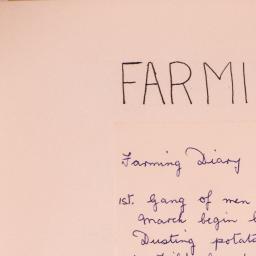 FARMI
Farming Diary
1st. Gang of men
March begin
Dusting potato